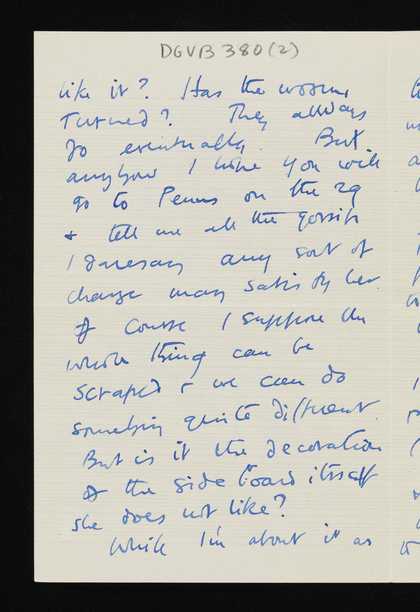 DGVB 380 (2)
like it? Has the worm
Turned? They allways
do eventually. But
anyhow I hope you will
go to Penns on the 29
& tell me all the gossip
I daresay any sort of
change may satisfy her.
Of course I suppose the
whole thing can be
scraped & we can do
something quite different.
But is it the decoration
of the side board itself
she does not like?
While I'm about it as